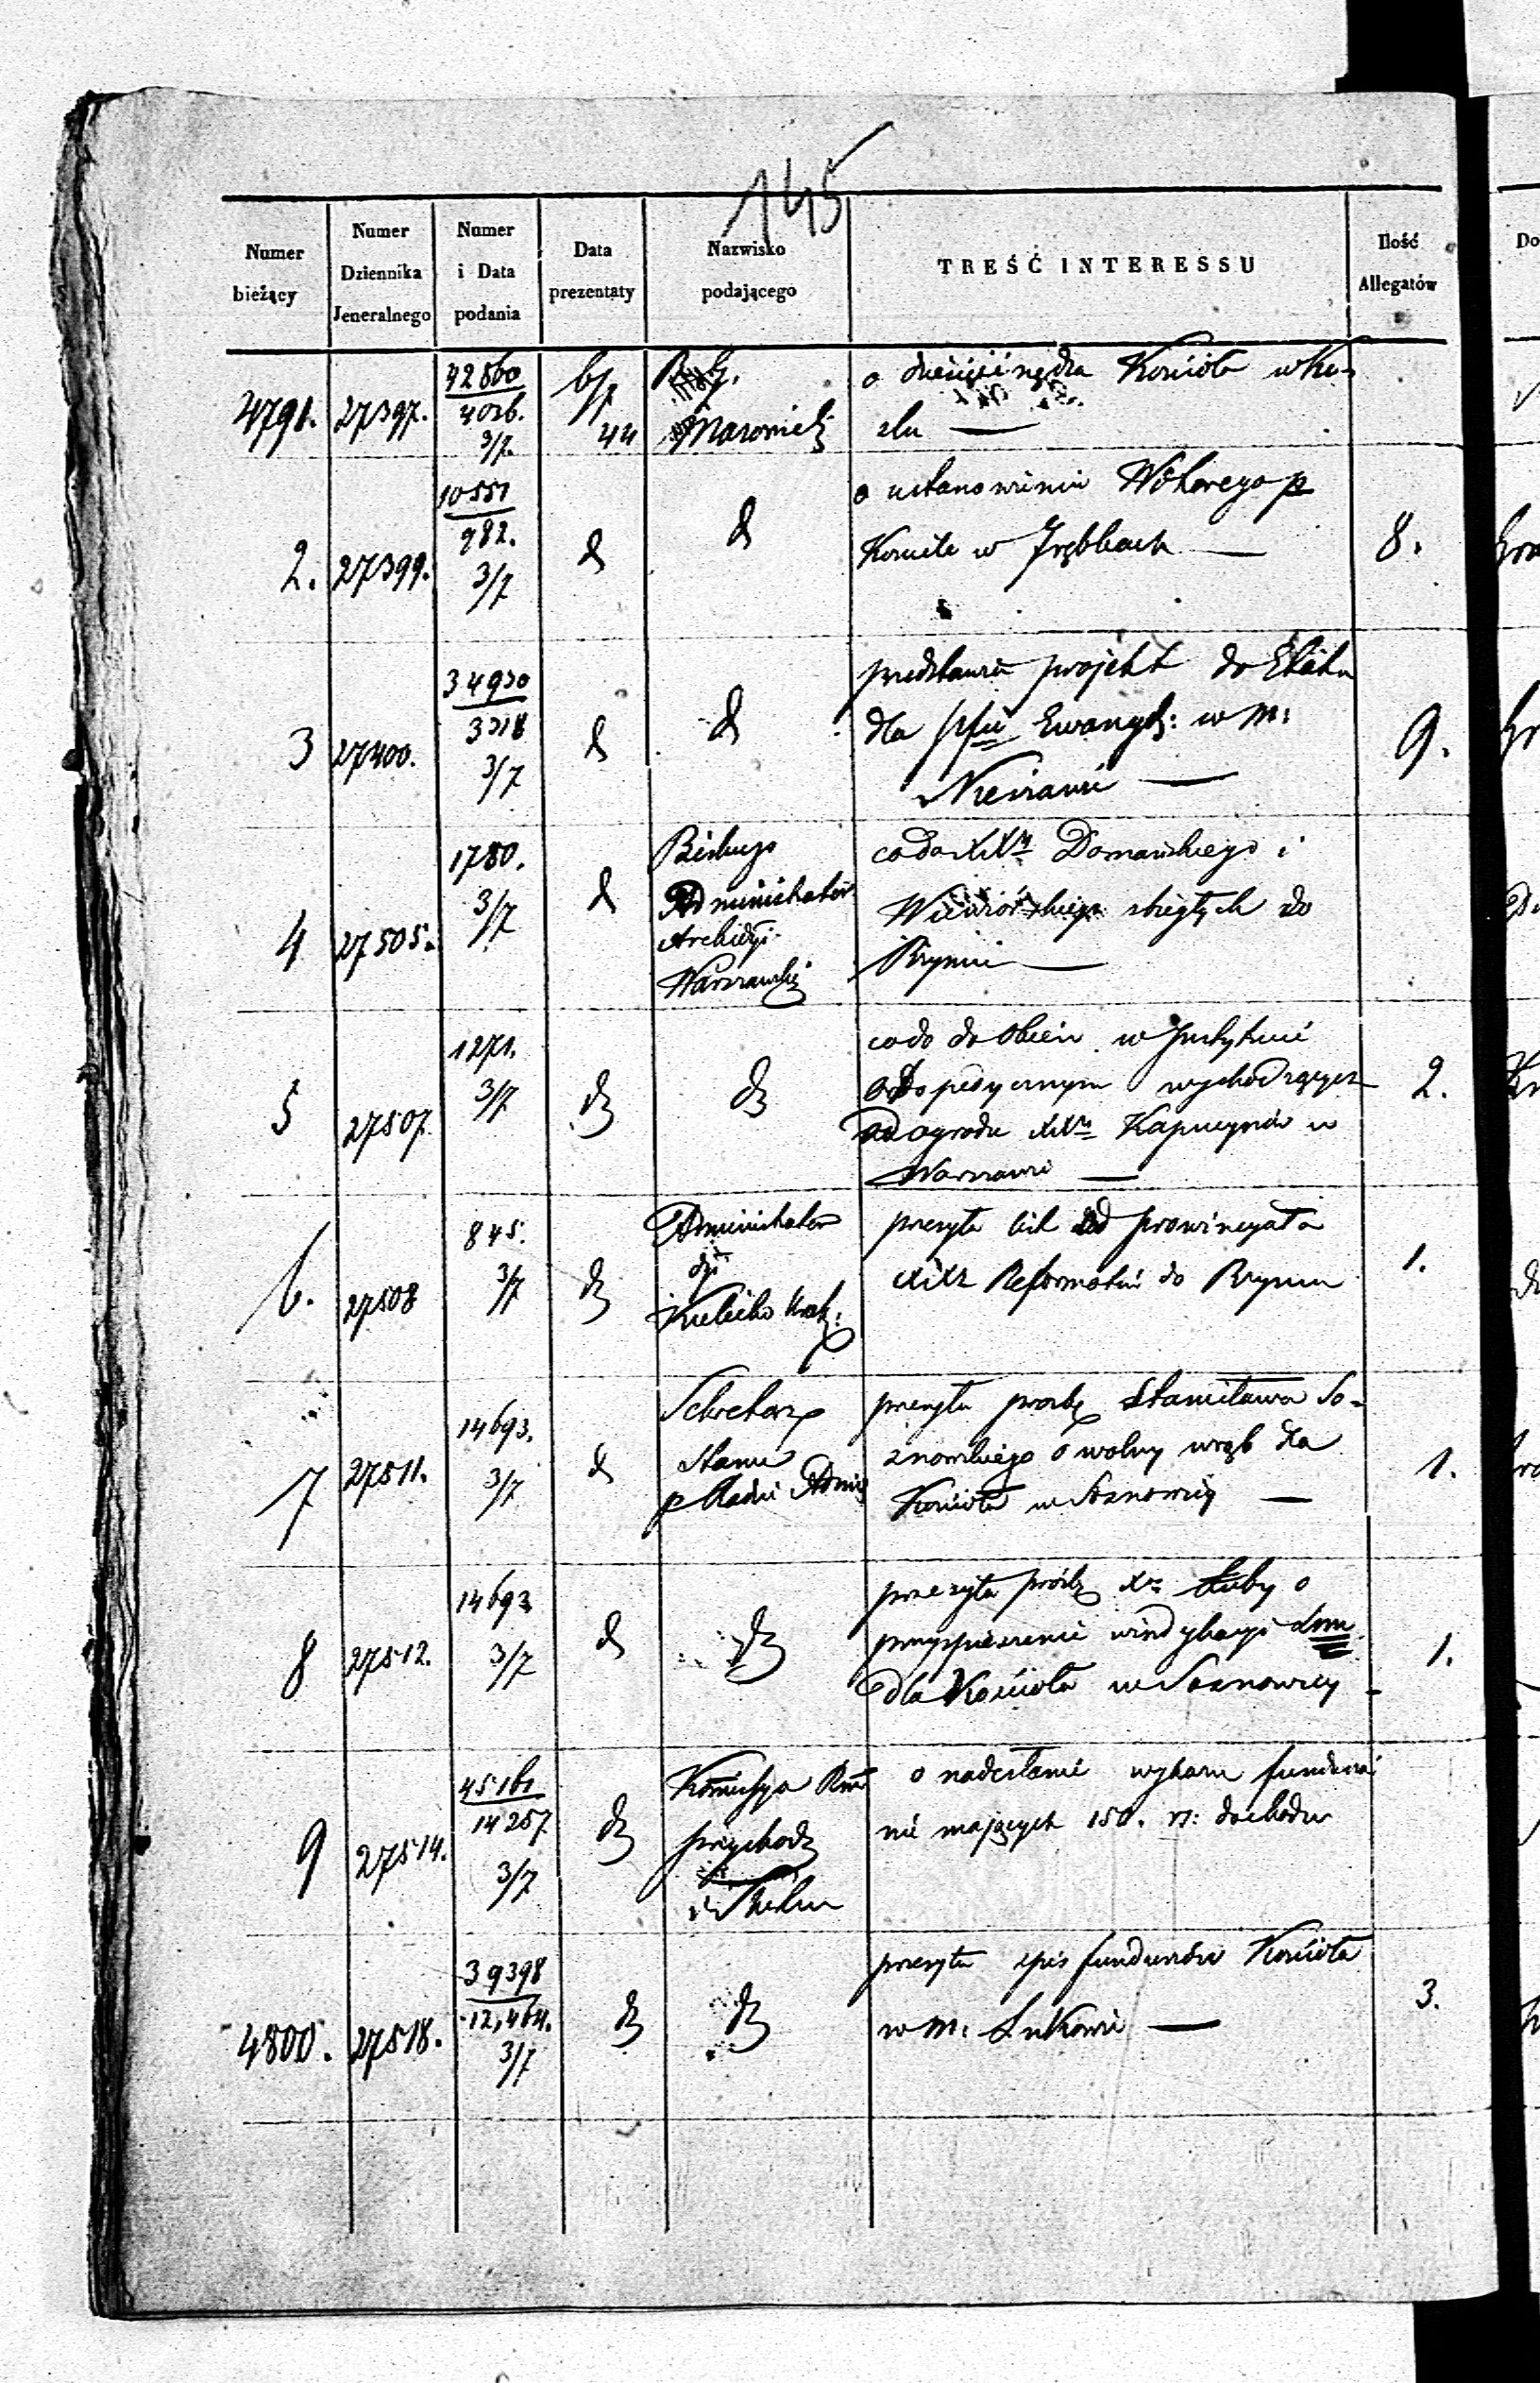 145
Numer bieżący
Numer Dziennika Jeneralnego
Numer i Data podania
Data prezentaty
Nazwisko podającego
TREŚĆ INTERESSU
Ilość Allegatów
4791. 27397. 42860 4026. 3/7. 6/7 44 Mazowiecki o dziesięcinę dla Kościoła w Ko-
zlu —
2. 27399. 10551 982. 3/7 d d o ustanowieniu Wikarego p
Kościele w Zrębkach — 8.
3 27400. 34930 3318 3/7 d d przedstawia projekt do Etatu
dla pfii Ewangel: w m:
Nieszawie — 9.
4 27505. 1780. 3/7 d Biskup
Administrator
Archidyi.
Warszawski
co do XXy Domańskiego i
Wiewiórskiego zbiegłych do
Rzymu —
5 27507. 1271. 3/7 dz dz co do do okien w Instytucie
Ortopedycznym wychodzących
od ogrodu XXy Kapucynów w
Warszawie — 2.
6. 27508 845. 3/7 dz Administrator
dyi
Kielecko Krak:
przesyła list od prowincyała
XXz Reformatów do Rzymu 1.
7 27511. 14693. 3/7 d Sekretarz
Stanu
p Radzie Admi
przesyła prośbę Stanisława So-
znowskiego o wolny wrąb dla
Kościoła w Sosnowicy — 1.
8 27512. 14693 3/7 d dz przesyła prośbę Xa Łuby o
przyspieszenie windykacyi
dla Kościoła w Sosnowicy - 1.
9 27514. 45161 14257 3/7 dz Kommissya Rzą
przychodów
i Skarbu
o nadesłanie wykazu funduszów
nie mających 150. rs: dochodu
4800. 27518. 39398 12,464. 3/7 dz dz przesyła spis funduszów Kościoła
w m: Łukowie — 3.